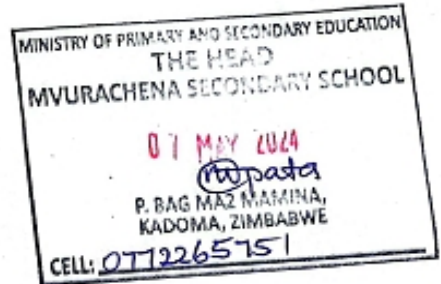 MINISTRY OF PRIMARY AND SECONDARY EDUCATION
THE HEAD
MVURACHENA SECONDARY SCHOOL
07 MAY 2024
P. BAG MA2 MAMINA,
KADOMA, ZIMBABWE
CELL: 0772265751